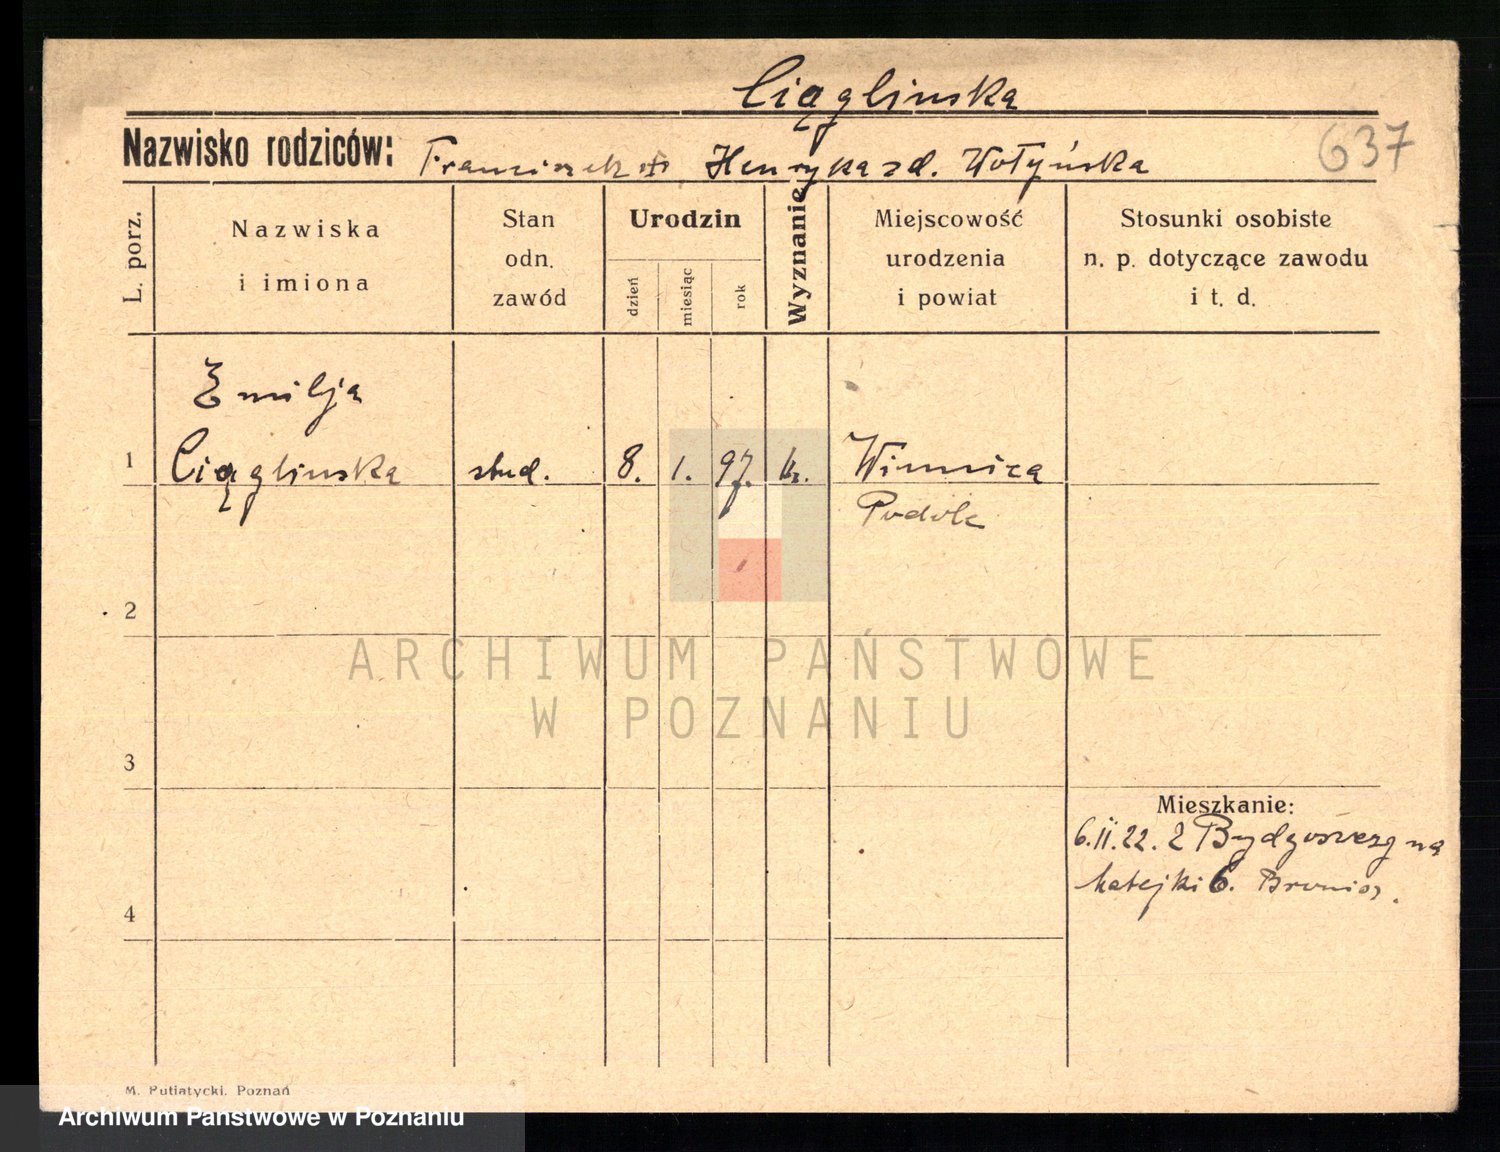 Ciąglinska
Nazwisko rodziców: Franciszek Henryka zd. Wołyńska
637
L. porz.
Nazwiska
i imiona
Stan
odn.
zawód
Urodzin
dzień
miesiąc
rok
Wyznanie
Miejscowość
urodzenia
i powiat
Stosunki osobiste
n. p. dotyczące zawodu
i t. d.
Emilja
1 Ciąglinska stud. 8. 1. 97. Winnica
Podole
2
ARCHIWUM PAŃSTWOWE
W POZNANIU
3
Mieszkanie:
6.II.22. z Bydgoszczy na
Matejki 6.
4
M. Putiatycki. Poznań
Archiwum Państwowe w Poznaniu